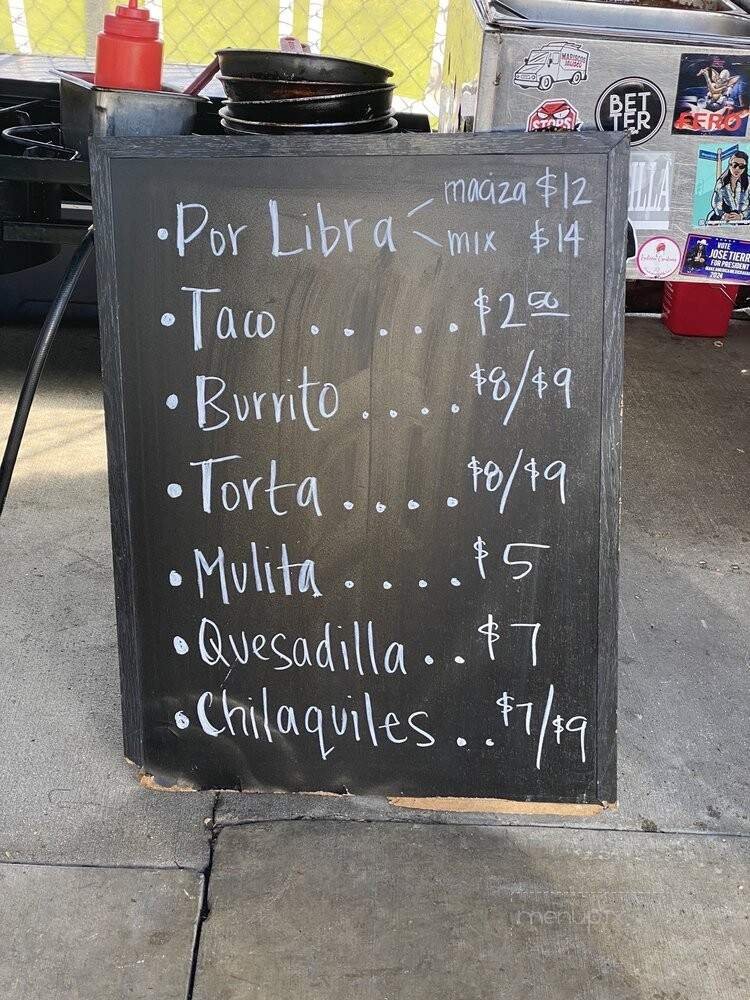 MARISCOS JALISCO
BET
TER
ILLA
VOTE
JOSE TIERR
FOR PRESIDENT
2024
•Por Libra maciza $12
mix $14
•Taco ..... $2 50
•Burrito .... $8/$9
•Torta .... $8/$9
•Mulita .... $5
•Quesadilla .. $7
•Chilaquiles .. $7/$9
menupix